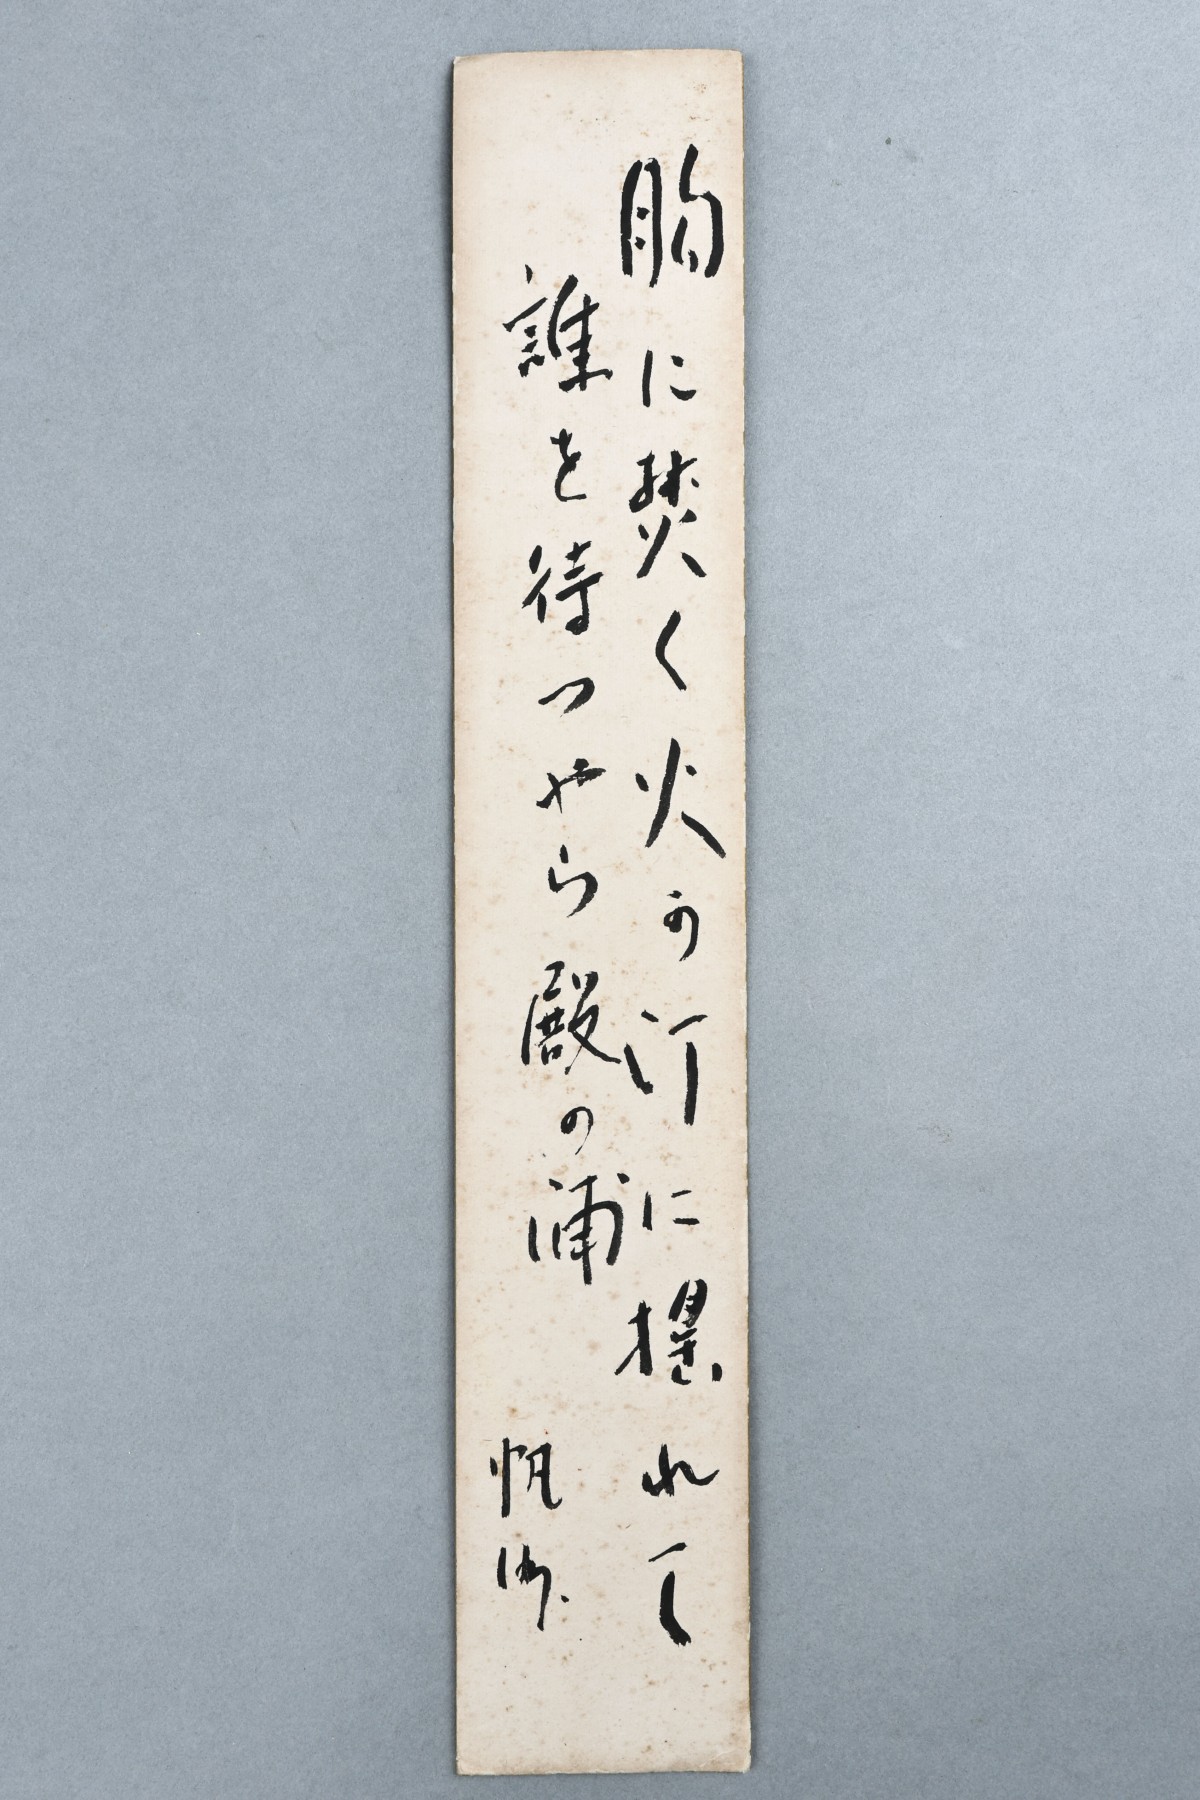 胸に焚く火か汀に揺れて
誰を待つやら殿の浦
帆